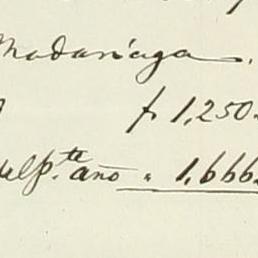 Madariaga.
f 1,250.
delp.te año " 1,666.